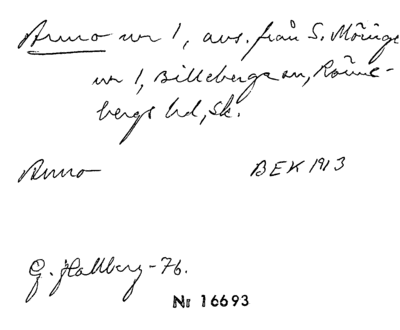 Arno nr 1, avs. från S. Möinge
nr 1, Billeberga sn, Rönne-
bergs hd, Sk.
Arno
BEK 1913
G. Hallberg -76.
Nr 16693